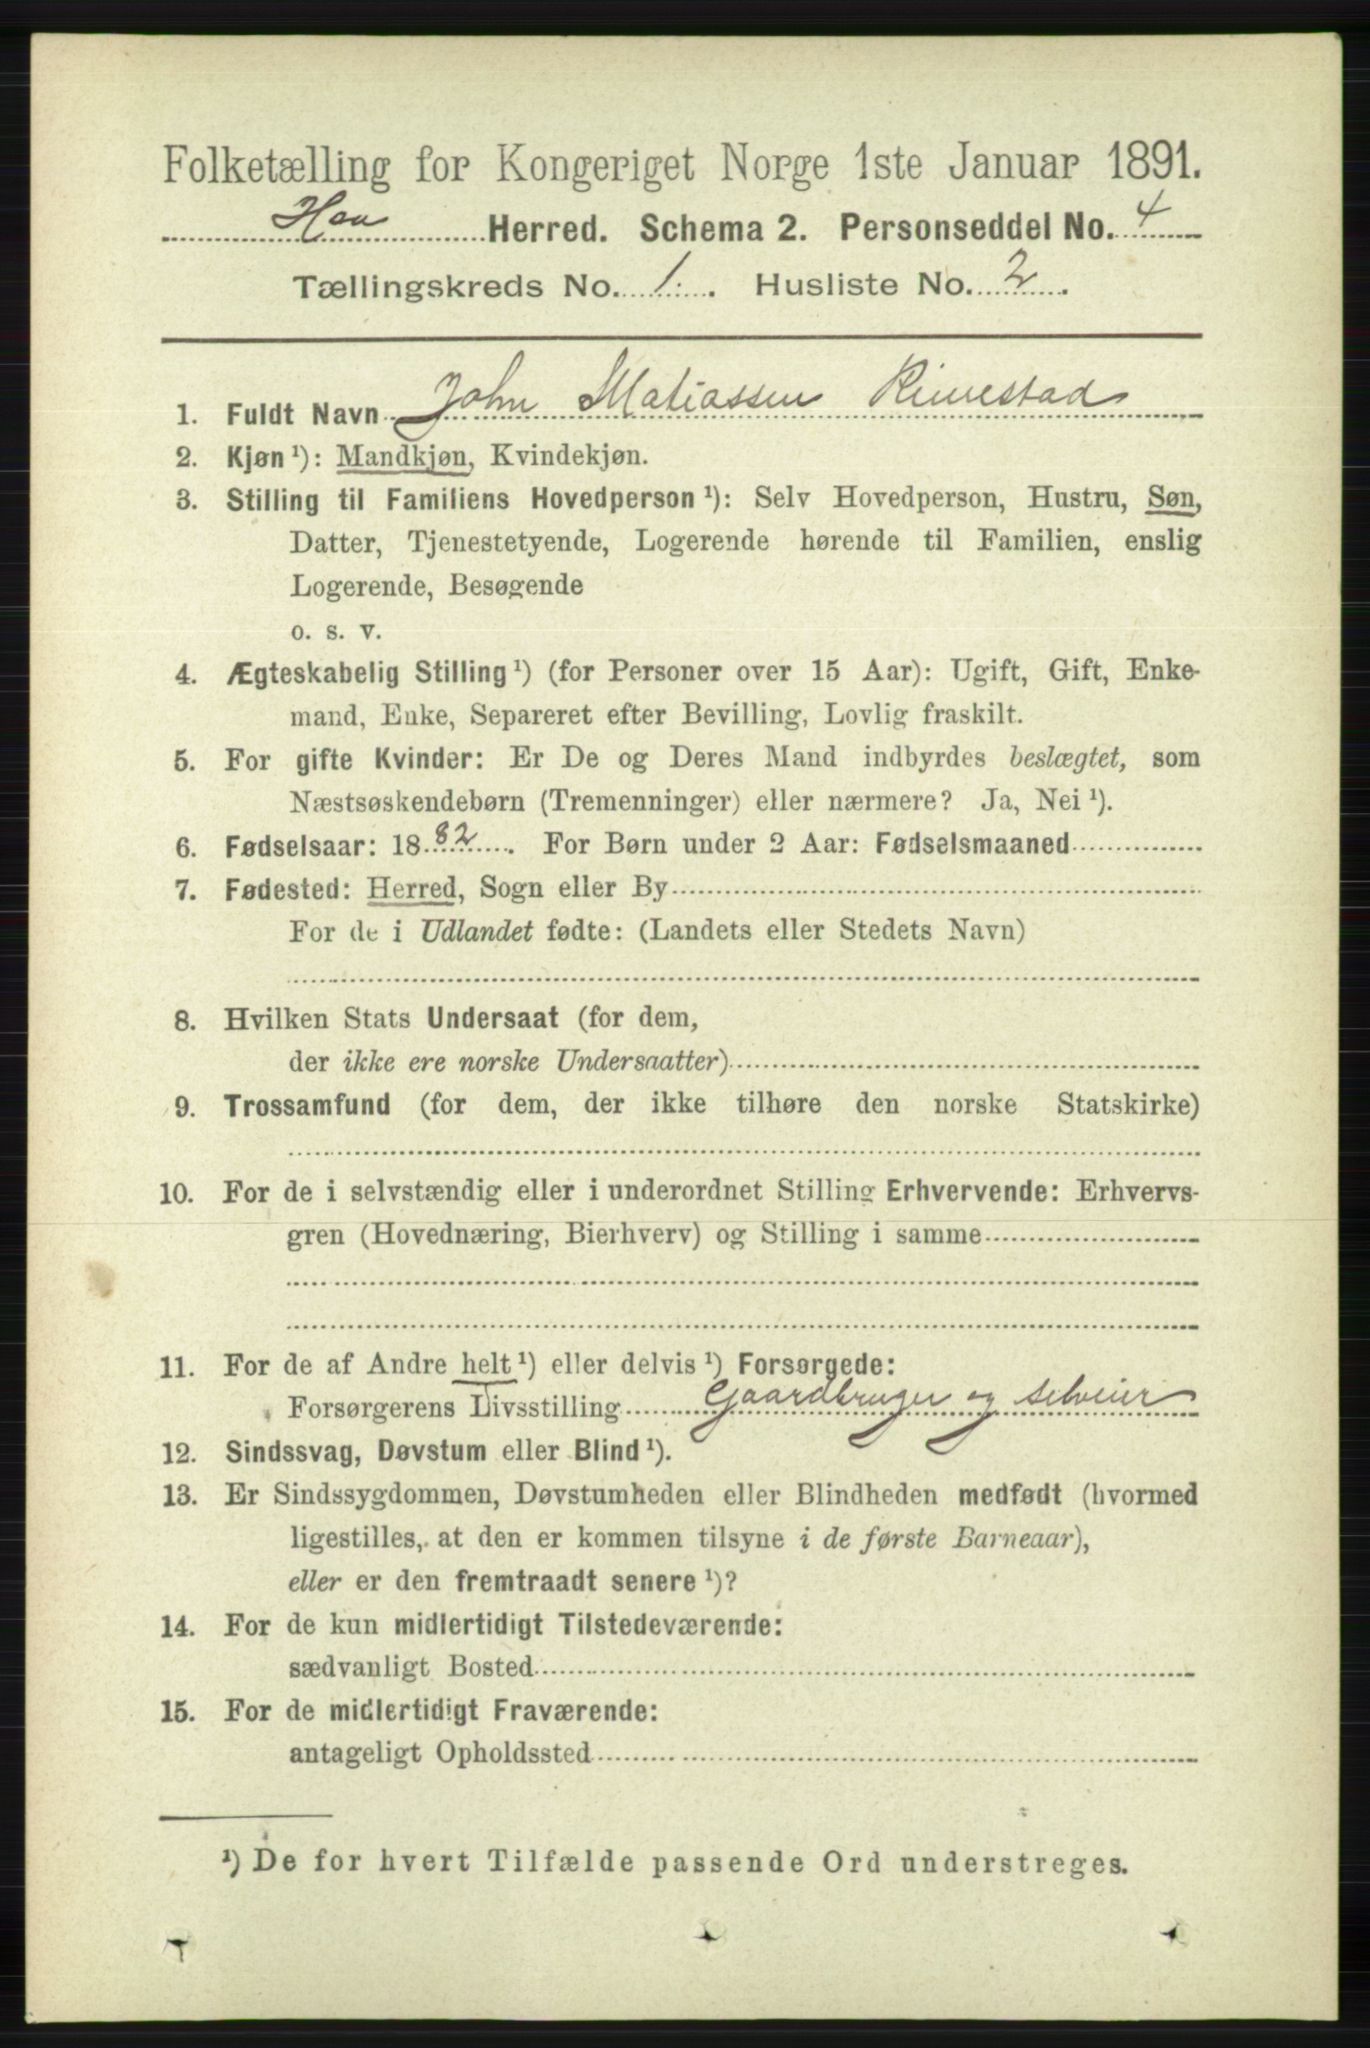 Folketælling for Kongeriget Norge 1ste Januar 1891.
Haa Herred. Schema 2. Personseddel No. 4
Tællingskreds No. 1. Husliste No. 2.
1. Fuldt Navn John Matiassen Rimestad
2. Kjøn ¹): Mandkjøn, Kvindekjøn.
3. Stilling til Familiens Hovedperson ¹): Selv Hovedperson, Hustru, Søn,
Datter, Tjenestetyende, Logerende hørende til Familien, enslig
Logerende, Besøgende
o. s. v.
4. Ægteskabelig Stilling ¹) (for Personer over 15 Aar): Ugift, Gift, Enke-
mand, Enke, Separeret efter Bevilling, Lovlig fraskilt.
5. For gifte Kvinder: Er De og Deres Mand indbyrdes beslægtet, som
Næstsøskendebørn (Tremenninger) eller nærmere? Ja, Nei ¹).
6. Fødselsaar: 1882. For Børn under 2 Aar: Fødselsmaaned
7. Fødested: Herred, Sogn eller By
For de i Udlandet fødte: (Landets eller Stedets Navn)
8. Hvilken Stats Undersaat (for dem,
der ikke ere norske Undersaatter)
9. Trossamfund (for dem, der ikke tilhøre den norske Statskirke)
10. For de i selvstændig eller i underordnet Stilling Erhvervende: Erhvervs-
gren (Hovednæring, Bierhverv) og Stilling i samme
11. For de af Andre helt ¹) eller delvis ¹) Forsørgede:
Forsørgerens Livsstilling Gaardbruger og selveier
12. Sindssvag, Døvstum eller Blind ¹).
13. Er Sindssygdommen, Døvstumheden eller Blindheden medfødt (hvormed
ligestilles, at den er kommen tilsyne i de første Barneaar),
eller er den fremtraadt senere ¹)?
14. For de kun midlertidigt Tilstedeværende:
sædvanligt Bosted
15. For de midlertidigt Fraværende:
antageligt Opholdssted
¹) De for hvert Tilfælde passende Ord understreges.